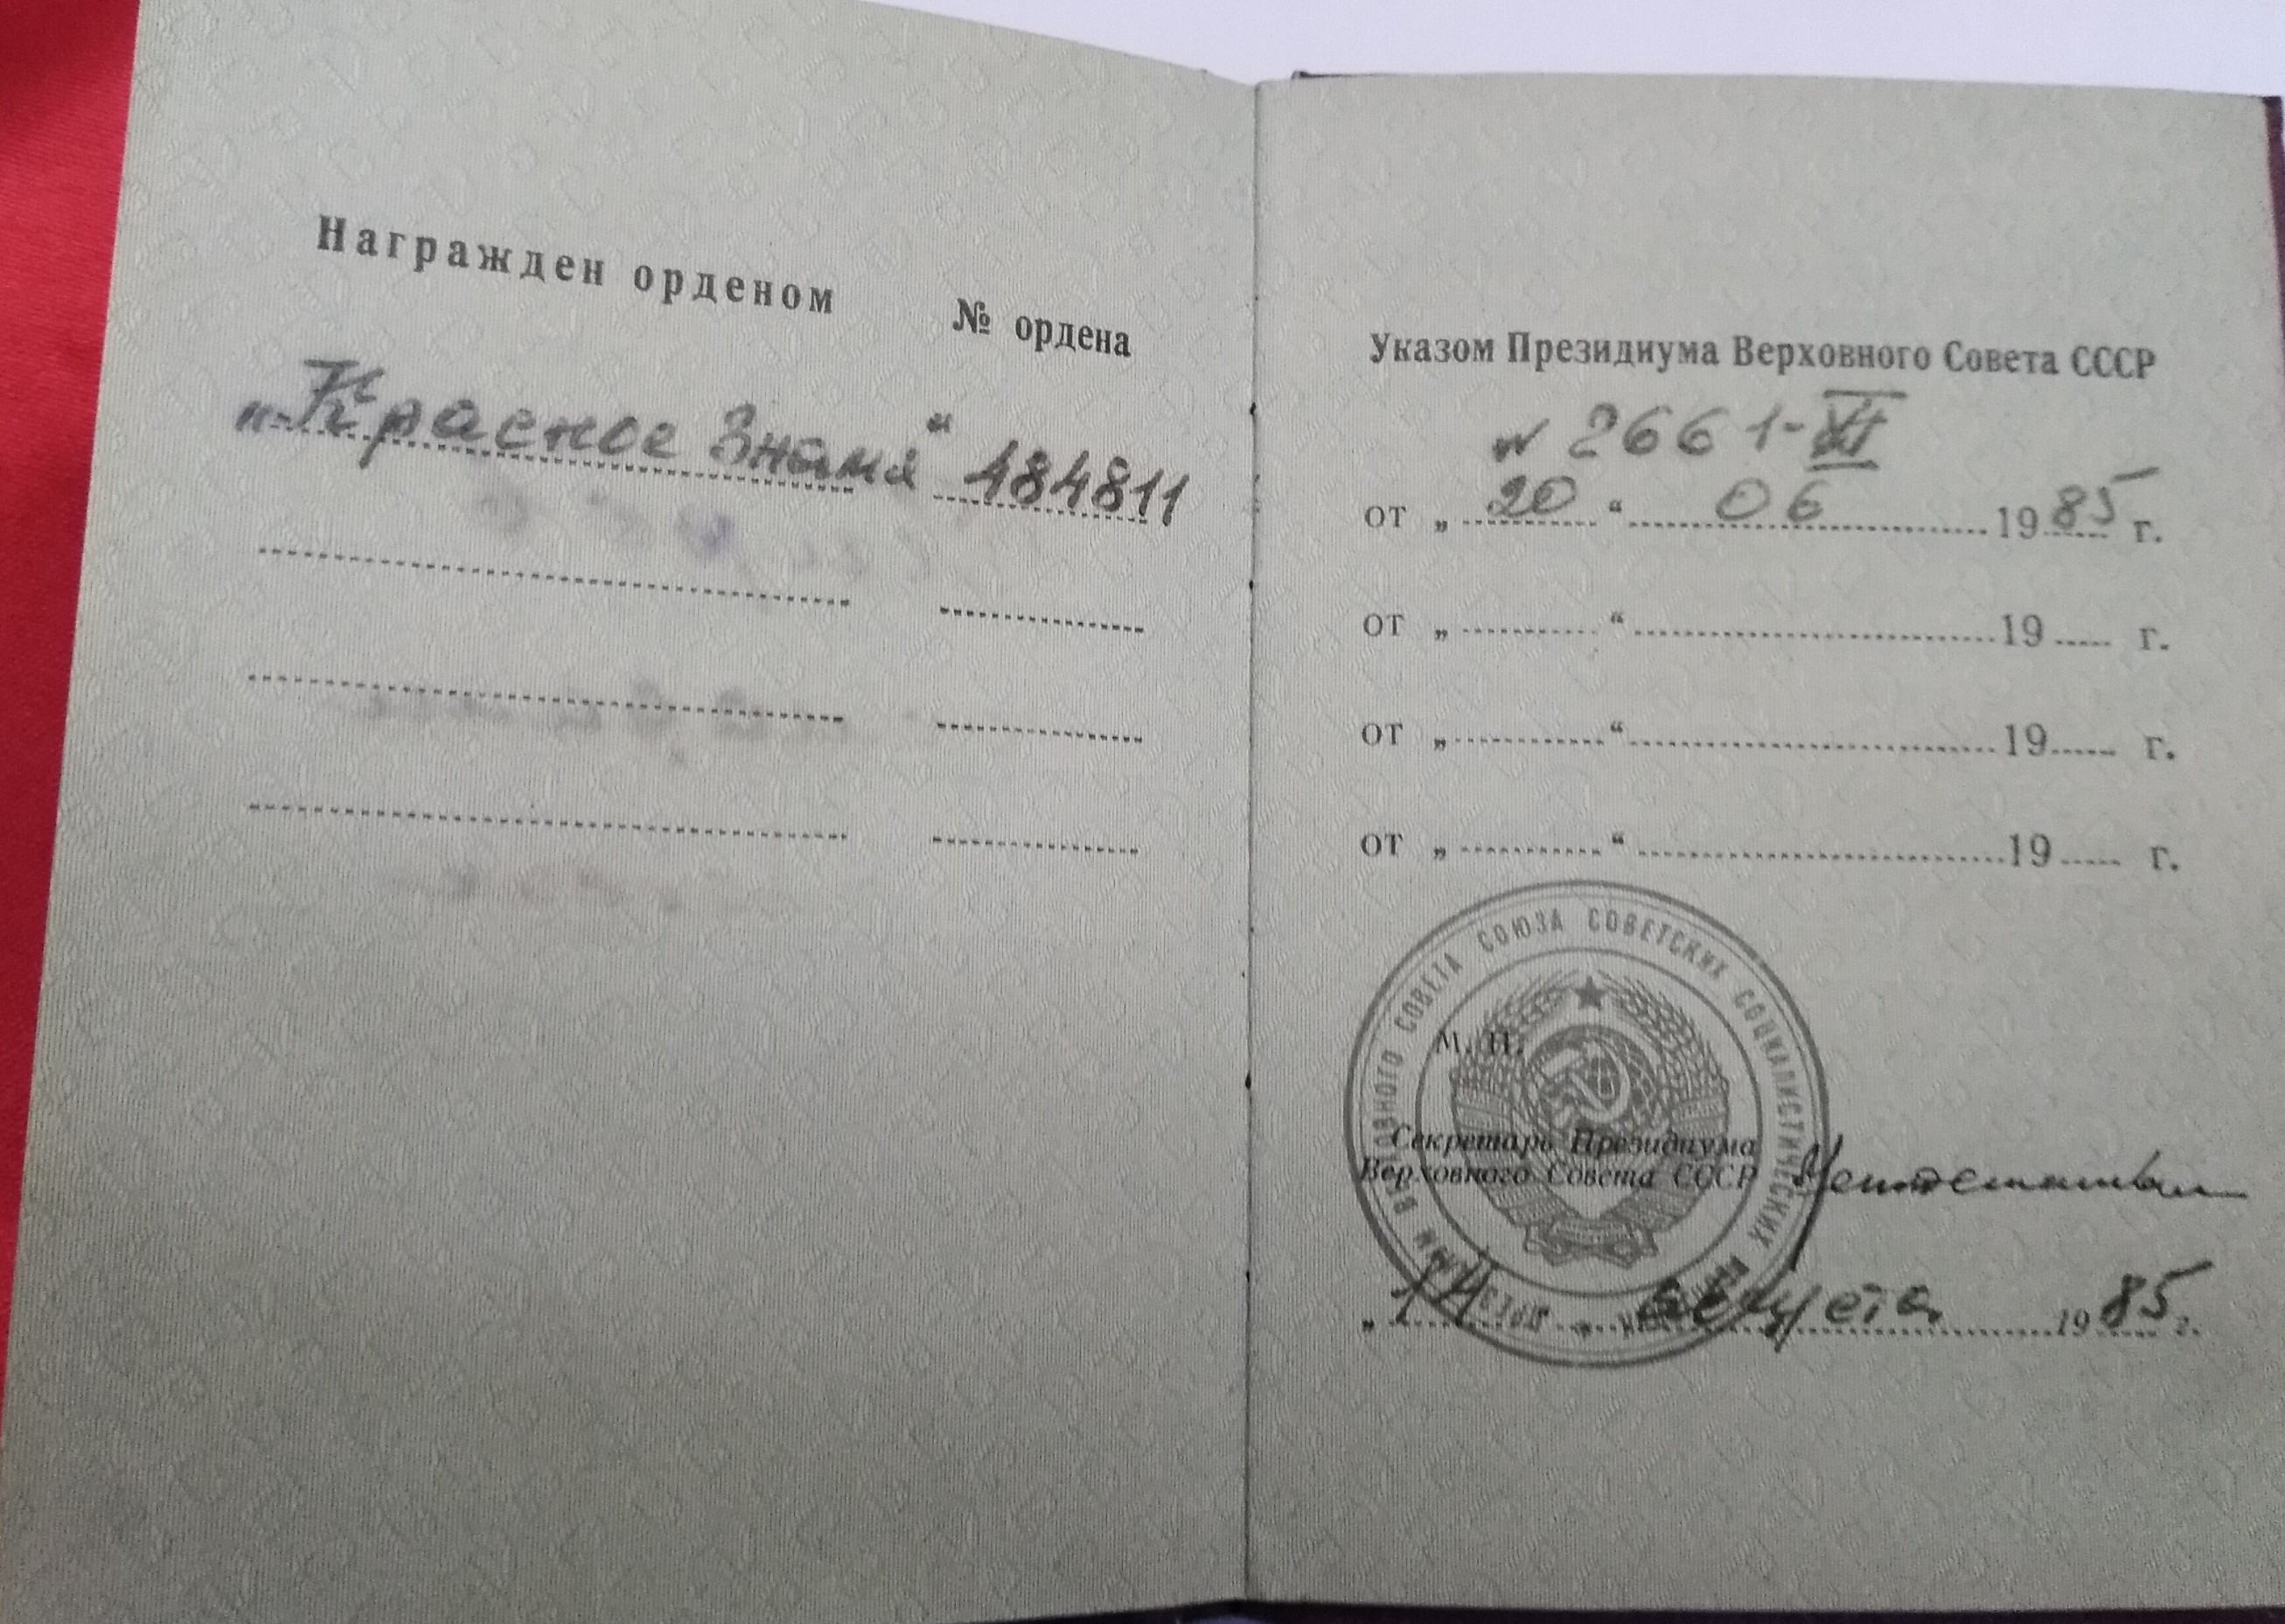 Награжден орденом № ордена
„Красное Знамя“ 484811
Указом Президиума Верховного Совета СССР
№ 2661-XI
от „20“ 06 1985 г.
от „ “ 19 г.
от „ “ 19 г.
от „ “ 19 г.
СОВЕТА СОЮЗА СОВЕТСКИХ СОЦИАЛИСТИЧЕСКИХ
М. П.
Секретарь Президиума
Верховного Совета СССР
„14 “ августа 1985 г.